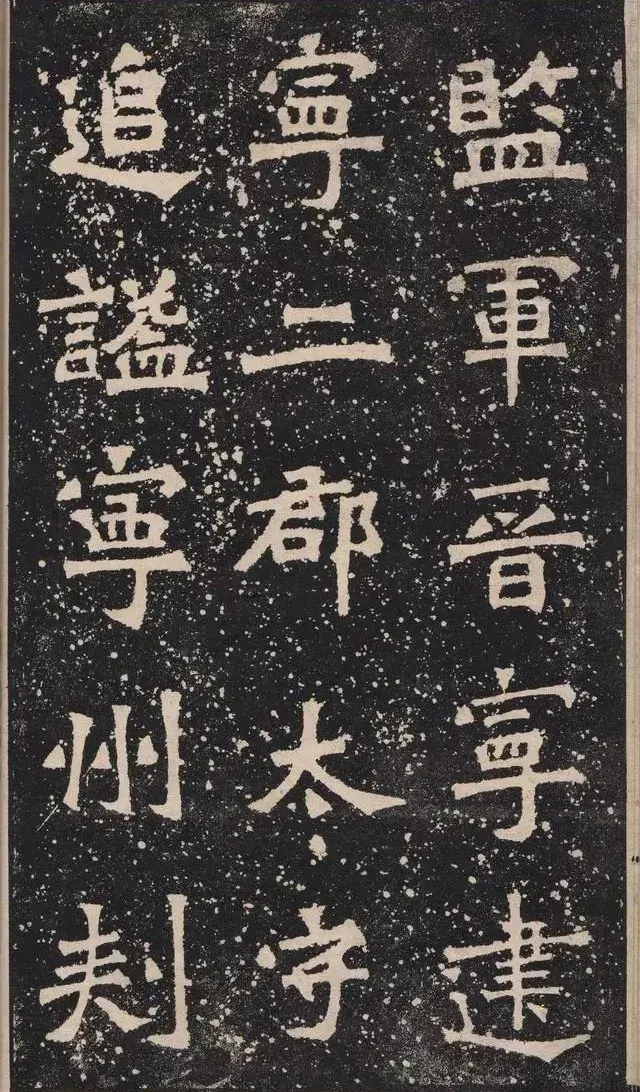 監軍晉寧建
寧二郡太守
追諡寧州刾